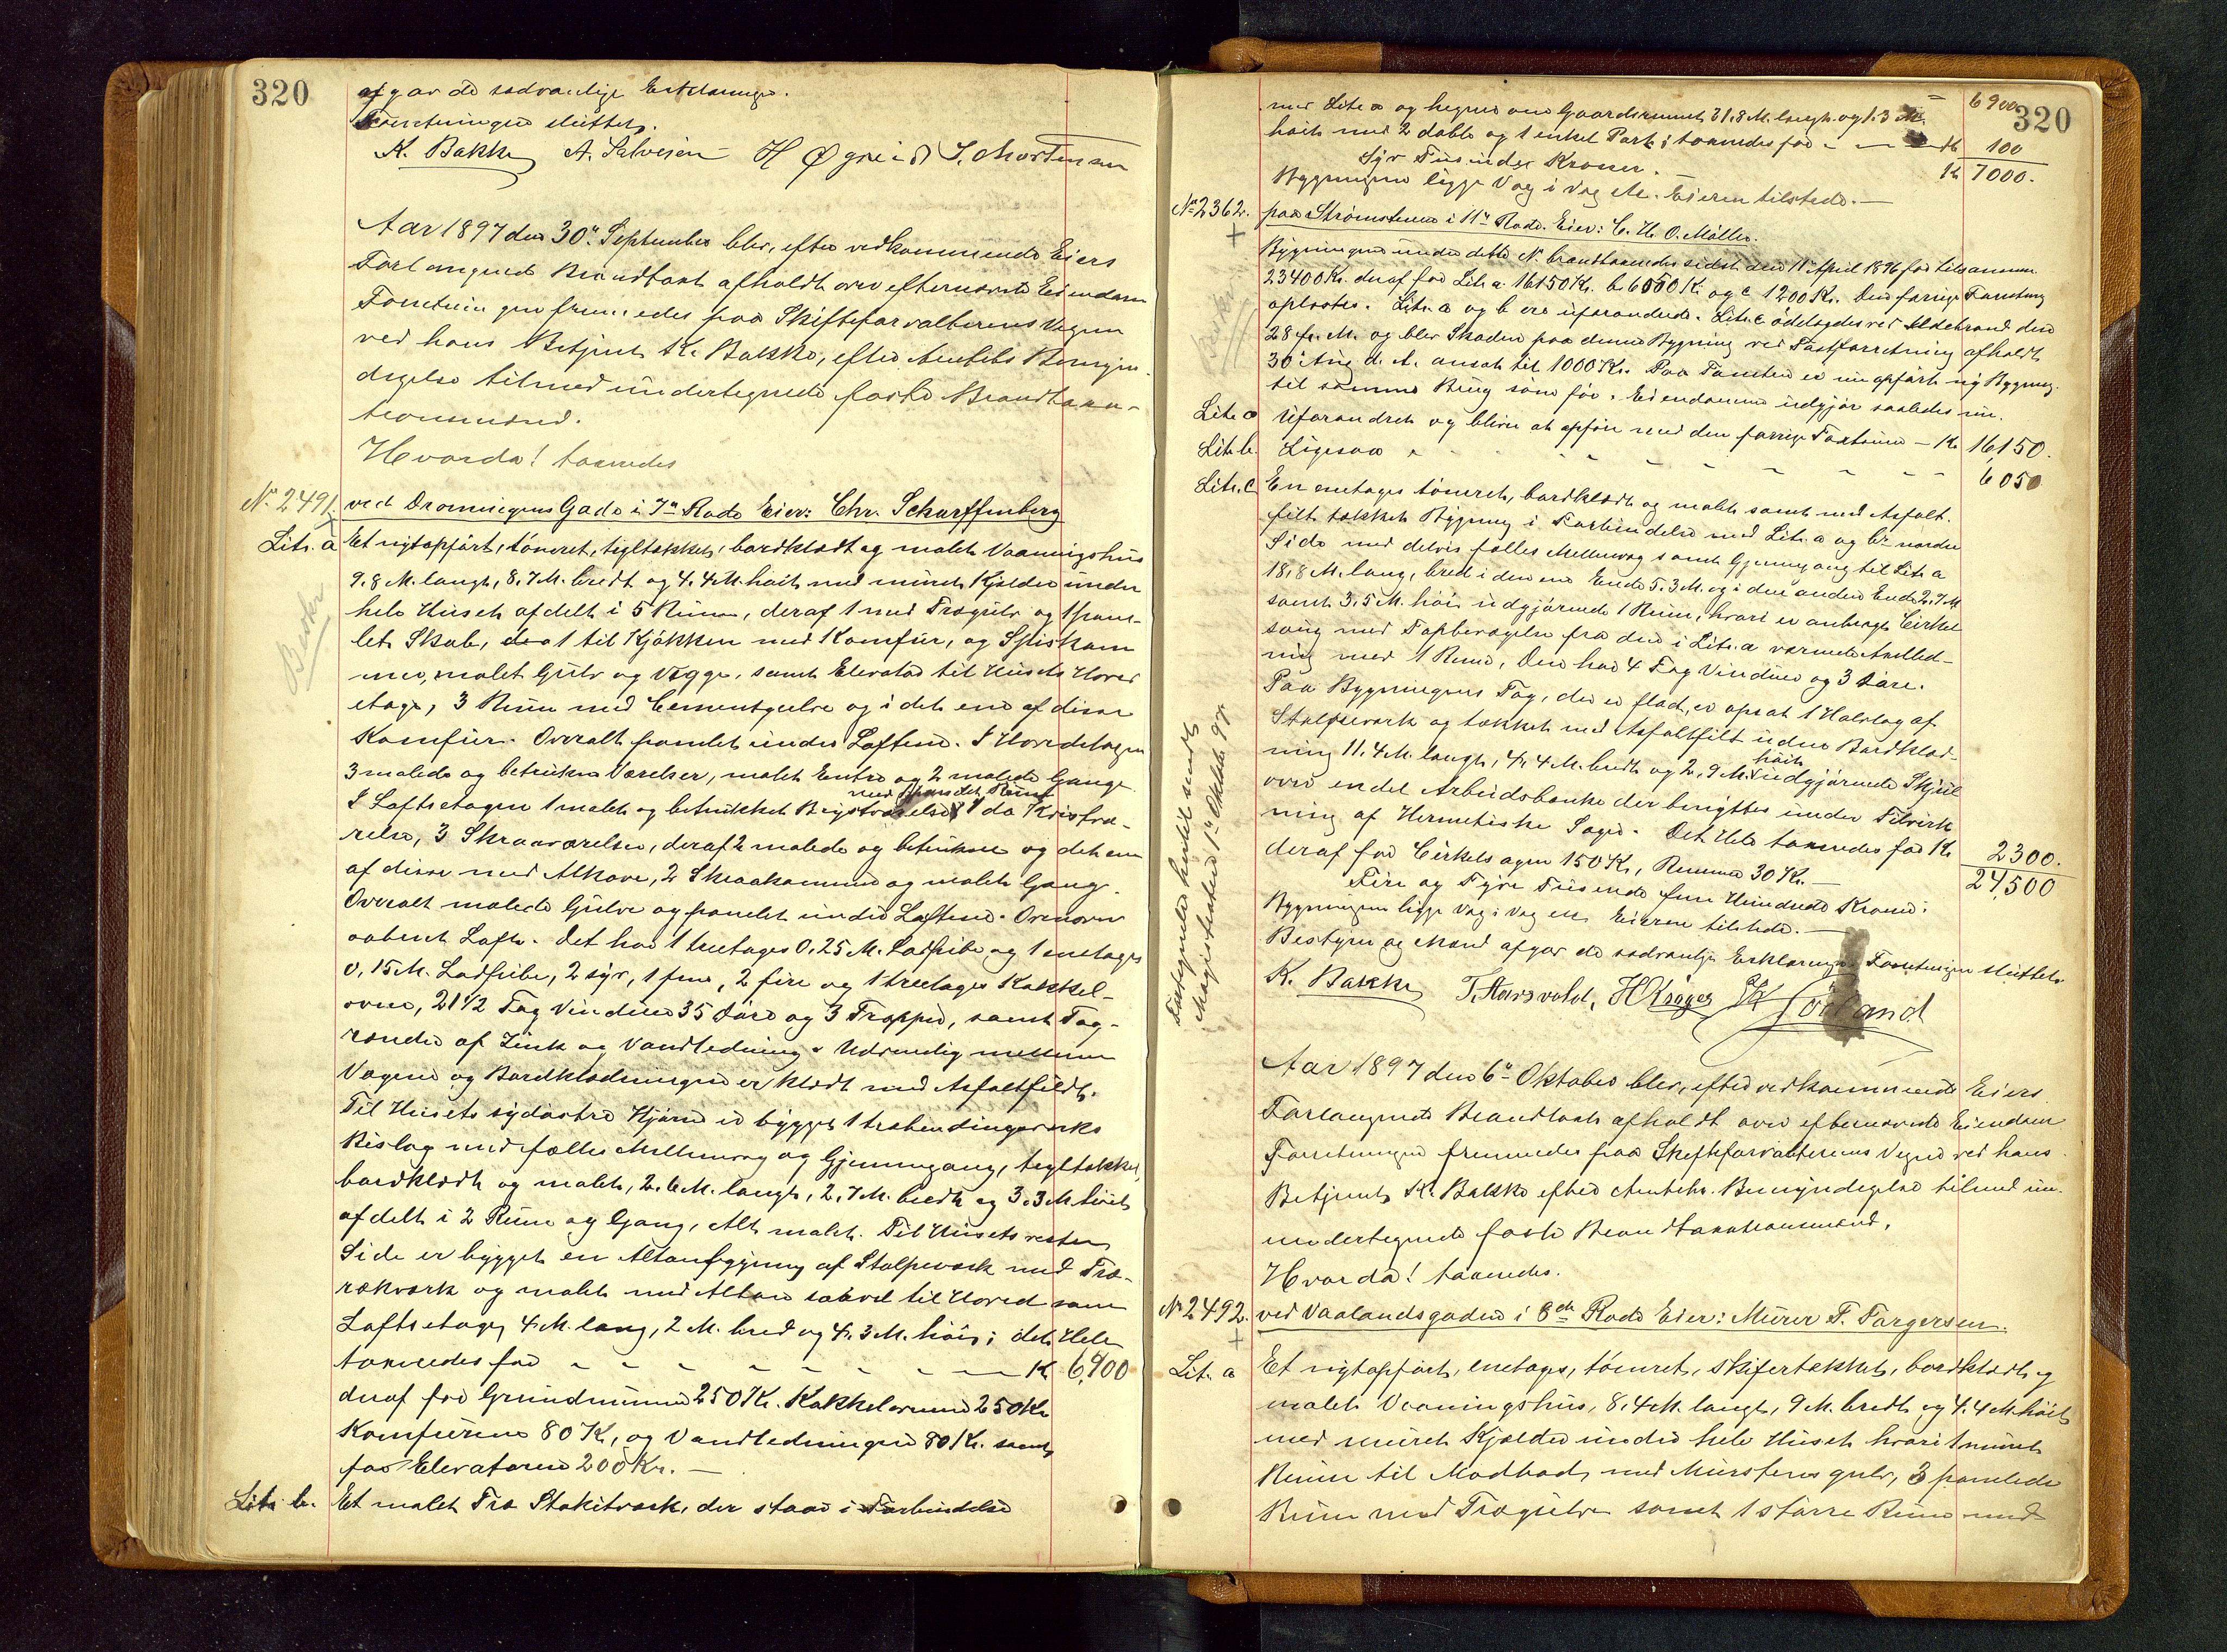 320
afgav de sædvanlige Erklæringer.
Forretningen sluttet.
K. Bakke A. Salvesen H Øgreid S. Mortensen
Aar 1897 den 30te September blev, efter vedkommende Eiers
Forlangende Brandtaxt afholdt over efternævnte Eiendom
Forretningen fremmedes paa Skifteforvalterens Vegne
ved hans Betjent K. Bakke, efter Amtets Bemyn-
digelse tilmed undertegnede faste Brandtaxa-
tionsmænd.
Hvorda! taxeredes
No 2491. ved Dronningens Gade i 7de Rode Eier: Chr. Scharffenberg
Litr. a Et nytopført, tømret, tegltækket, bordklædt og malet Vaaningshus
9,8 M. langt, 8,7 M. bredt og 4,4 M. høit med muret Kjælder under
hele Huset afdelt i 5 Rum, deraf 1 med Trægulv og 1 pane-
let Skab, 1 til Kjøkken med Komfur, og Spiskam
mer, malet Gulv og Vægge, samt Elevator til Husets Hoved
etage, 3 Rum med Cementgulve og i det ene af disse
Komfur. Overalt panelet under Loftene. I Hovedetagen
3 malede og betrukne Værelser, malet Entre og 2 malede Gange
med panelet Rum
I Loftsetagen 1 malet og betrukket Bigstværelse 1 do Kvistvæ-
relse, 3 Skraaværelser, deraf 2 malede og betrukne og det ene
af disse med Alkove, 2 Skraakammere og malet Gang.
Overalt malede Gulve og panelet under Loftene. Ovenover
aabent Loft. Det har 1 treetages 0,25 M. Ladpibe og 1 enetages
0,15 M. Ladpibe, 2 syv, 1 fem, 2 fire og 1 treetages Kakkel-
ovne, 21 1/2 Fag Vinduer 35 Døre og 3 Trapper, samt Tag-
render af Zink og Vandledning. Udvendig mellem
Væggene og Bordklædningen er klædt med Asfaltfildt.
Til Husets sydøstre Hjørne er bygget 1 etbindingsværks
Bislag med fælles Mellemvæg og Gjennemgang, tegltækket,
bordklædt og malet, 2,6 M. langt, 2,7 M. bredt og 3,3 M høit
afdelt i 2 Rum og Gang, Alt malet. Til Husets vestre
Side er bygget en Altanbygning af Stolpeværk med Træ-
rækværk og malet med Altan saavel til Hoved som
Loftsetage, 4 M. lang, 2 M. bred og 4,3 M. høi; det Hele
taxeredes for - - - - - - - - K 6,900
deraf for Grundmuren 250 Kr. Kakkelovnene 250 Kr
Komfurene 80 Kr, og Vandledningen 80 Kr. samt
for Elevatoren 200 Kr. —
Litr. b. Et malet Træ Stakitværk, der staar i Forbindelse
Beskr
320
6900
med Litr. a og hegner om Gaardsrummet 31,8 M. langt og 1,3 M.
høit med 2 doble og 1 enkel Port; taxeredes for - - - 100
Syv Tusinde Kroner. K 7000.
Bygningene ligge Væg i Væg etc. Eieren tilstede. —
No 2362. paa Strømsteen i 11te Rode. Eier: C. H. O. Møller.
Bygningene under dette No brandtaxeredes sidst den 11te April 1896 for tilsammen
23400 Kr. deraf for Litr. a 16150 Kr. b 6050 Kr. og c 1200 Kr. Den forrige Forretning
oplæstes. Litr. a og b ere uforandrede. Litr. c ødelagdes ved Ildebrand den
28 f. M. og blev Skaden paa denne Bygning ved Taxtforretning afholdt
30te Aug d. A. ansat til 1000 Kr. Paa Tomten er nu opført ny Bygning
til samme Brug som før. Eiendommen udgjør saaledes nu.
Litr. a Uforandret og bliver at opføre med den forrige Taxtsum - K 16,150.
Litr. b. Ligesaa - - - - - - - - 6050
Litr. c En enetages tømret, bordklædt og malet samt med Asfalt.
filt tækket Bygning i Forbindelse med Litr. a og b's nordre
Side med delvis fælles Mellemvæg samt Gjennemgang til Litr. a
18,8 M. lang, bred i den ene Ende 5,3 M. og i den anden Ende 2,7 M
samt 3,5 M. høi udgjørende 1 Rum, hvori er anbragt Cirkel
saug med Tapbevægelse fra den i Litr. a værende Axelled-
ning med 1 Rem, Den har 4 Fag Vinduer og 3 Døre.
Paa Bygningens Tag, der er flad, er opsat 1 Halvtag af
Stolpeværk og tækket med Asfaltfilt uden Bordklæd-
høit
ning 11,4 M. langt, 4,4 M. bredt og 2,9 M. udgjørende Skjul
over endel Arbeidsbænke der benyttes under Tilvirk
ning af Hermetiske Sager. Det Hele taxeredes for K 2300.
deraf for Cirkelsagen 150 Kr, Remmen 30 Kr. — 24,500
Fire og Tyve Tusinde fem Hundrede Kroner.
Bygningene ligge Væg i Væg etc. Eieren tilstede. —
Bestyrer og Mænd afgav de sædvanlige Erklæringer. Forretningen sluttet
K. Bakke T. Aarsvold, H Krøger
Fastegnelse hertil sendt
Magistraten 1te Oktbr. 97.
Aar 1897 den 6te Oktober blev, efter vedkommende Eiers
Forlangende Brandtaxt afholdt over efternævnte Eiendom
Forretningen fremmedes paa Skifteforvalterens Vegne ved hans
Betjent K. Bakke efter Amtets Bemyndigelse tilmed un-
undertegnede faste Brandtaxationsmænd.
Hvorda! taxeredes.
No 2492. ved Vaalandsgaden i 8de Rode Eier: Murer T. Torgersen.
Litr. a Et nytopført, enetages, tømret, skifertækket, bordklædt og
malet Vaaningshus, 8,4 M. langt, 9 M. bredt og 4,4 M. høit
med muret Kjælder under hele Huset hvori 1 muret
Rum til Madbod, med Murstens gulv, 3 panelede
Rum med Trægulve samt 1 større Rum med